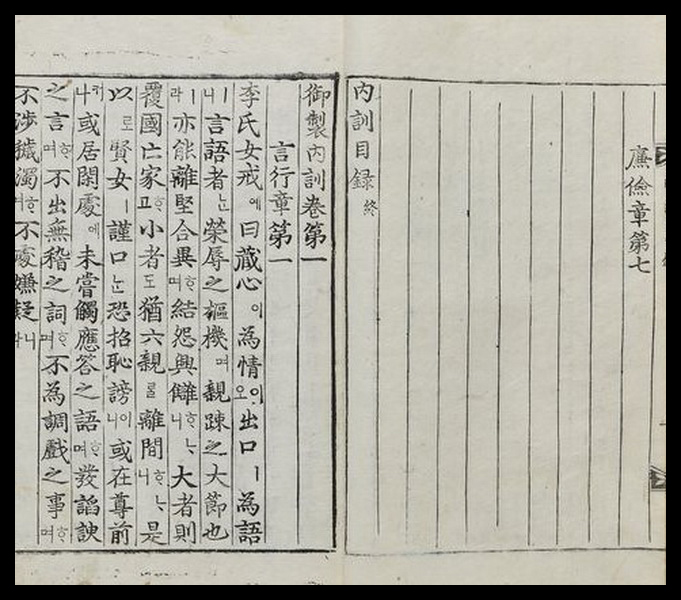 廉儉章第七
內訓目録終
御製內訓卷第一
言行章第一
李氏女戒예曰藏心이為情이오出口ㅣ為語
ㅣ니言語者ᄂᆞᆫ榮辱之樞機며親踈之大節也
ㅣ라亦能離堅合異ᄒᆞ며結怨興讎ᄒᆞᄂᆞ니大者則
覆國亡家ᄒᆞ고小者도猶六親ᄅᆞᆯ離間ᄒᆞᄂᆞ니是
以로賢女ㅣ謹口ᄂᆞᆫ恐招恥謗이니或在尊前
커나或居閑處에未嘗觸應答之語ᄒᆞ며發諂諛
之言ᄒᆞ며不出無稽之詞ᄒᆞ며不為調戲之事ᄒᆞ며
不涉穢濁ᄒᆞ며不處嫌疑니라